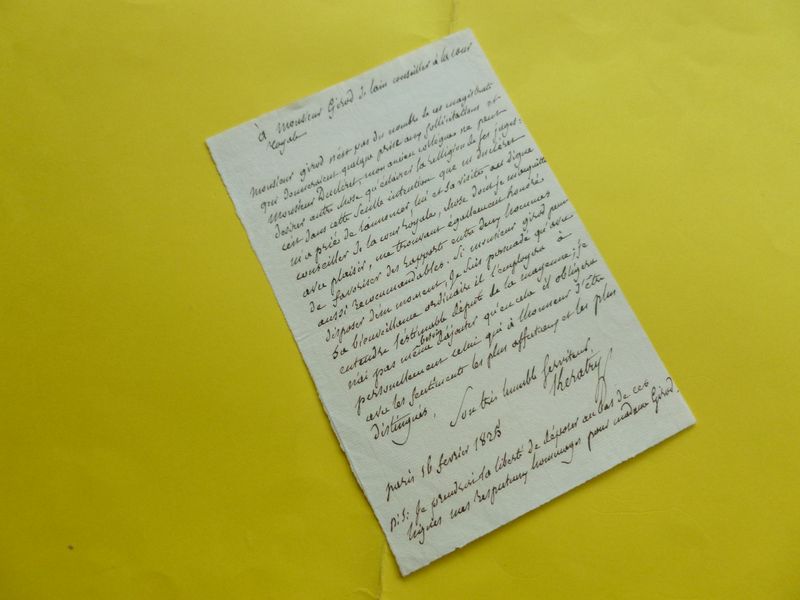 à Monsieur Girod de lain conseiller à la cour
royale
Monsieur girod n'est pas du nombre de ces magistrats
qui donneraient quelque prise aux sollicitations et
Monsieur mon ancien collègue ne peut
desirer autre chose qu'éclairer la relligion de ses juges:
cest dans cette seule intention que m
m'a prié de lannoncer lui et sa visite, au digne
conseiller de la cour royale, chose dont je m'acquitte
avec plaisir, me trouvant égallement honoré
de favoriser des rapports entre deux hommes
aussi recommandables. Si monsieur girod peut
disposer d'un moment, je suis persuadé qu'avec
sa bienveillance ordinaire il l'employera à
entendre l'estimable député de la mayenne; je
n'ai pas même besoin d'ajouter qu'en cela il obligera
personnellement celui qui à lhonneur d'être
avec les sentiments les plus affectueux et les plus
distingués,
Son très humble serviteur.
Kératry
paris 16 fevrier
p.s. Je prendrai la liberté de déposer au bas de ces
lignes mes respectueux hommages pour madame Girod.